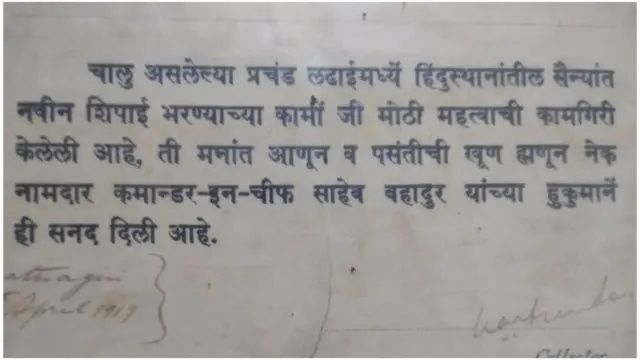 चालु असलेल्या प्रचंड लढाईमध्यें हिंदुस्थानांतील सैन्यांत
नवीन शिपाई भरण्याच्या कामीं जी मोठी महत्वाची कामगिरी
केलेली आहे, ती मनांत आणून व पसंतीची खूण ह्मणून नेक
नामदार कमान्डर-इन-चीफ साहेब बहादुर यांच्या हुकुमानें
ही सनद दिली आहे.
April 1919
Collector